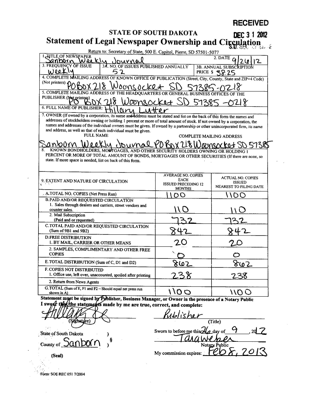 RECEIVED
DEC 31 2012
STATE OF SOUTH DAKOTA
Statement of Legal Newspaper Ownership and Circulation
Return to: Secretary of State, 500 E. Capitol, Pierre, SD 57501-5077
1. TITLE OF NEWSPAPER
Sanborn Weekly Journal
2. DATE 9/26/12
3. FREQUENCY OF ISSUE
Weekly
3A. NO. OF ISSUES PUBLISHED ANNUALLY
52
3B. ANNUAL SUBSCRIPTION
PRICE $
4. COMPLETE MAILING ADDRESS OF KNOWN OFFICE OF PUBLICATION (Street, City, County, State and ZIP+4 Code)
(Not printers) PO Box 218 Woonsocket SD 57385-0218
5. COMPLETE MAILING ADDRESS OF THE HEADQUARTERS OR GENERAL BUSINESS OFFICES OF THE
PUBLISHER (Not printer)
PO Box 218 Woonsocket SD 57385-0218
6. FULL NAME OF PUBLISHER: Hillary Lutter
7. OWNER (If owned by a corporation, its name and address must be stated and list on the back of this form the names and
addresses of stockholders owning or holding 1 percent or more of total amount of stock. If not owned by a corporation, the
names and addresses of the individual owners must be given. If owned by a partnership or other unincorporated firm, its name
and address, as well as that of each individual must be given.
FULL NAME COMPLETE MAILING ADDRESS
Sanborn Weekly Journal PO Box 218 Woonsocket SD 57385
8. KNOWN BONDHOLDERS, MORTGAGES, AND OTHER SECURITY HOLDERS OWNING OR HOLDING 1
PERCENT OR MORE OF TOTAL AMOUNT OF BONDS, MORTGAGES OR OTHER SECURITIES (If there are none, so
state. If more space is needed, list on back of this form.
9. EXTENT AND NATURE OF CIRCULATION
AVERAGE NO. COPIES
EACH
ISSUED PRECEDING 12
MONTHS
ACTUAL NO. COPIES
ISSUED
NEAREST TO FILING DATE
A.TOTAL NO. COPIES (Net Press Run) 1100 1100
B.PAID AND/OR REQUESTED CIRCULATION
1. Sales through dealers and carriers, street vendors and
counter sales. 110 110
2. Mail Subscription
(Paid and or requested) 732 732
C.TOTAL PAID AND/OR REQUESTED CIRCULATION
(Sum of 9B1 and 9B2) 842 842
D.FREE DISTRIBUTION
1. BY MAIL, CARRIER OR OTHER MEANS 20 20
2. SAMPLES, COMPLIMENTARY AND OTHER FREE
COPIES 0 0
E. TOTAL DISTRIBUTION (Sum of C, D1 and D2) 862 862
F. COPIES NOT DISTRIBUTED
1. Office use, left over, unaccounted, spoiled after printing 238 238
2. Return from News Agents
G. TOTAL (Sum of E, F1 and F2 – Should equal net press run
shown in A) 1100 1100
Statement must be signed by Publisher, Business Manager, or Owner in the presence of a Notary Public
I swear that the statements made by me are true, correct, and complete:
Publisher
(Title)
State of South Dakota
Sworn to before me this 26 day of 9, 2012
County of Sanborn
Tara Weber
Notary Public
(Seal)
My commission expires: Feb 8, 2013
Form: SOS REC 051 7/2004